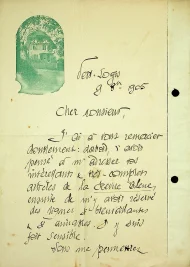 9 8bre 1905
Cher Monsieur,
J'ai à vous remercier
doublement: d'abord, d'avoir
pensé à m'adresser vos
intéressants et très complets
articles de la Revue Bleue,
ensuite de m'y avoir réservé
des lignes si bienveillantes
et si aimables. J'y suis
fort sensible.